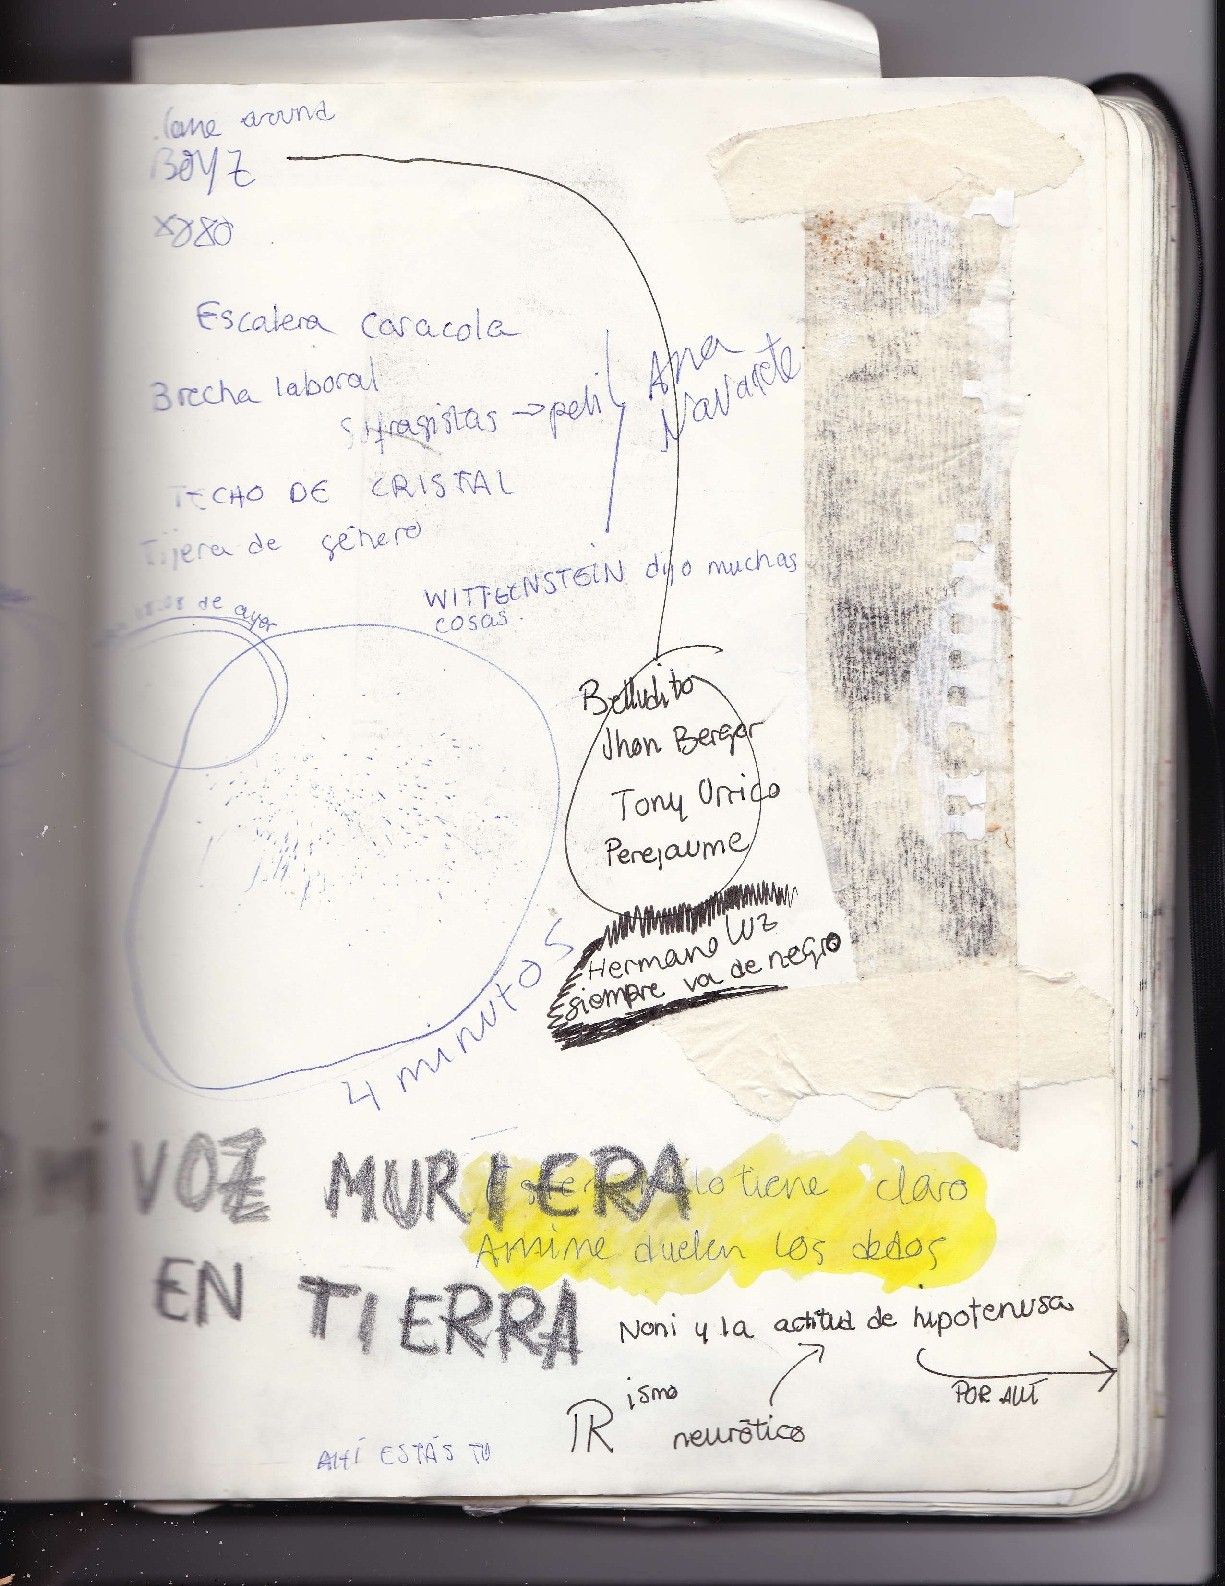 Came around
BOYZ
Escalera Caracola
Brecha laboral
Sufragistas → peli
Ana
Navarrete
TECHO DE CRISTAL
Tijera de género
WITTGENSTEIN dijo muchas
cosas.
de ayer
Jhon Berger
Tony Orrico
Perejaume
Hermano LUZ
siempre va de negro
4 minutos
MI VOZ MURIERA
EN TIERRA
lo tiene claro
Ami me duelen los dedos
Noni y la actitud de hipotenusa
POR ALLÍ
IR ismo
neurótico
AHÍ ESTÁS TÚ